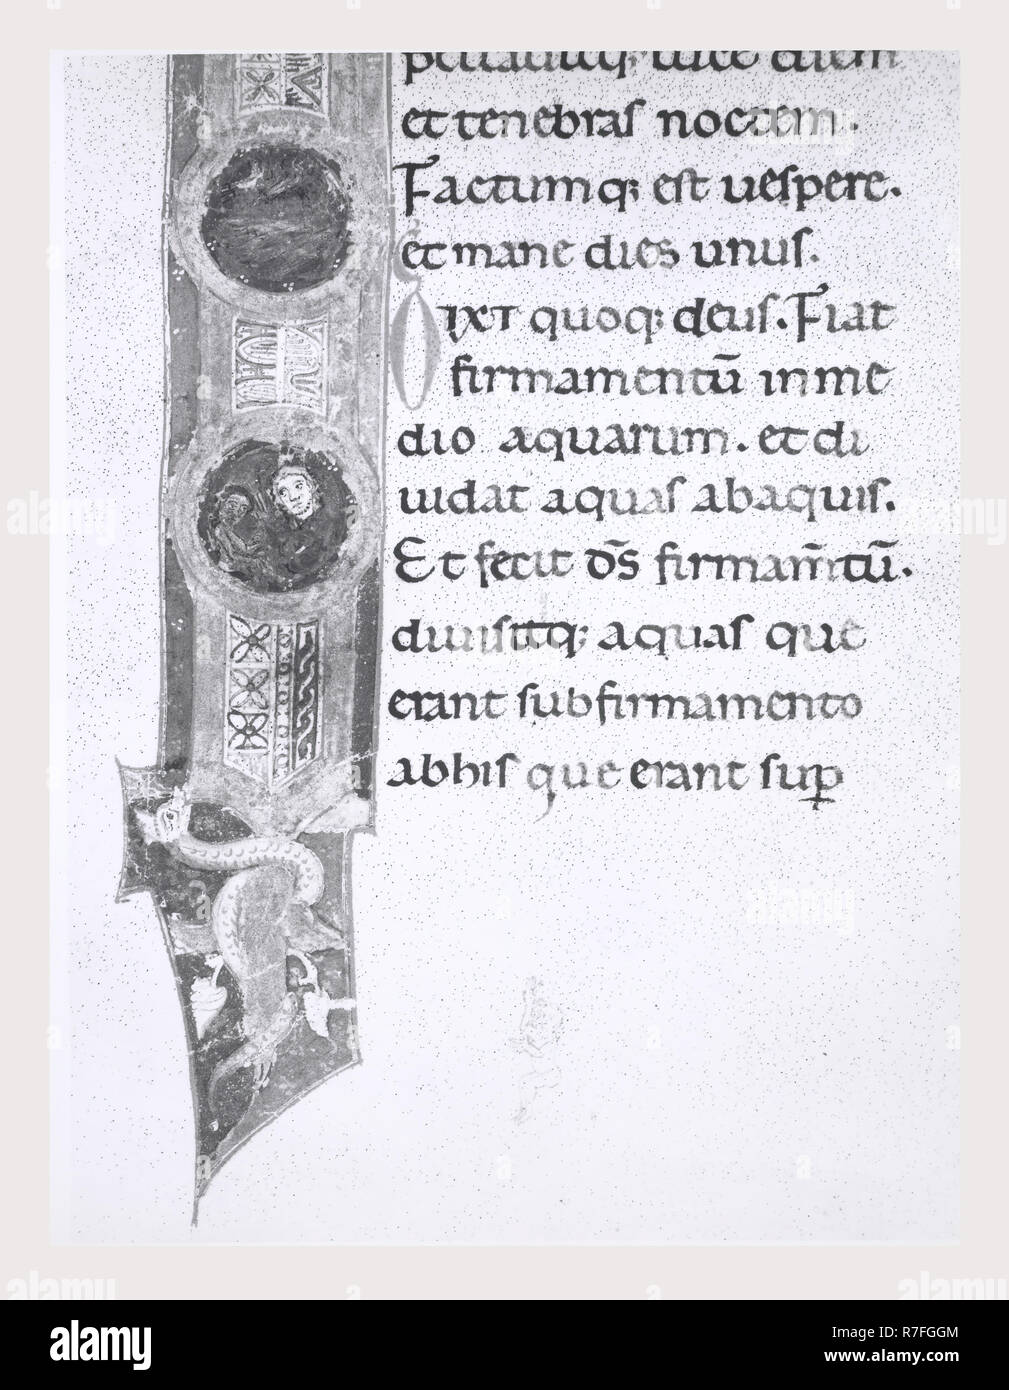 pellauitq; luce diem
et tenebras noctem.
Factumq; est uespere.
et mane dies unus.
DIXT quoq; deus. Fiat
firmamentū in me
dio aquarum. et di
uidat aquas ab aquis.
Et fecit ds̄ firmam̄tū.
diuisitq; aquas que
erant sub firmamento
ab his que erant sup̄
alamy
Image ID: R7FGGM
www.alamy.com